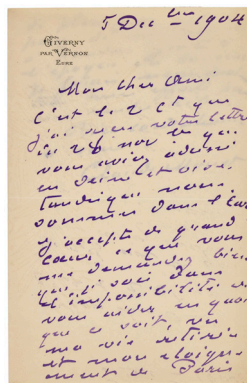 5 Decbre 1904
GIVERNY
PAR VERNON
EURE
Mon cher ami
c'est le 2 ct que
j'ai reçu votre lettre
du 28 nov le qu
vous aviez adressé
en Seine et Oise
tandis que nous
sommes dans l'Eure
j'accepte de grand
cœur ce que vous
me demandez bien
que je sois dans
l'impossibilité de
vous aider en quoi
que ce soit, vu
ma vie retirée
et mon éloigne
ment de Paris